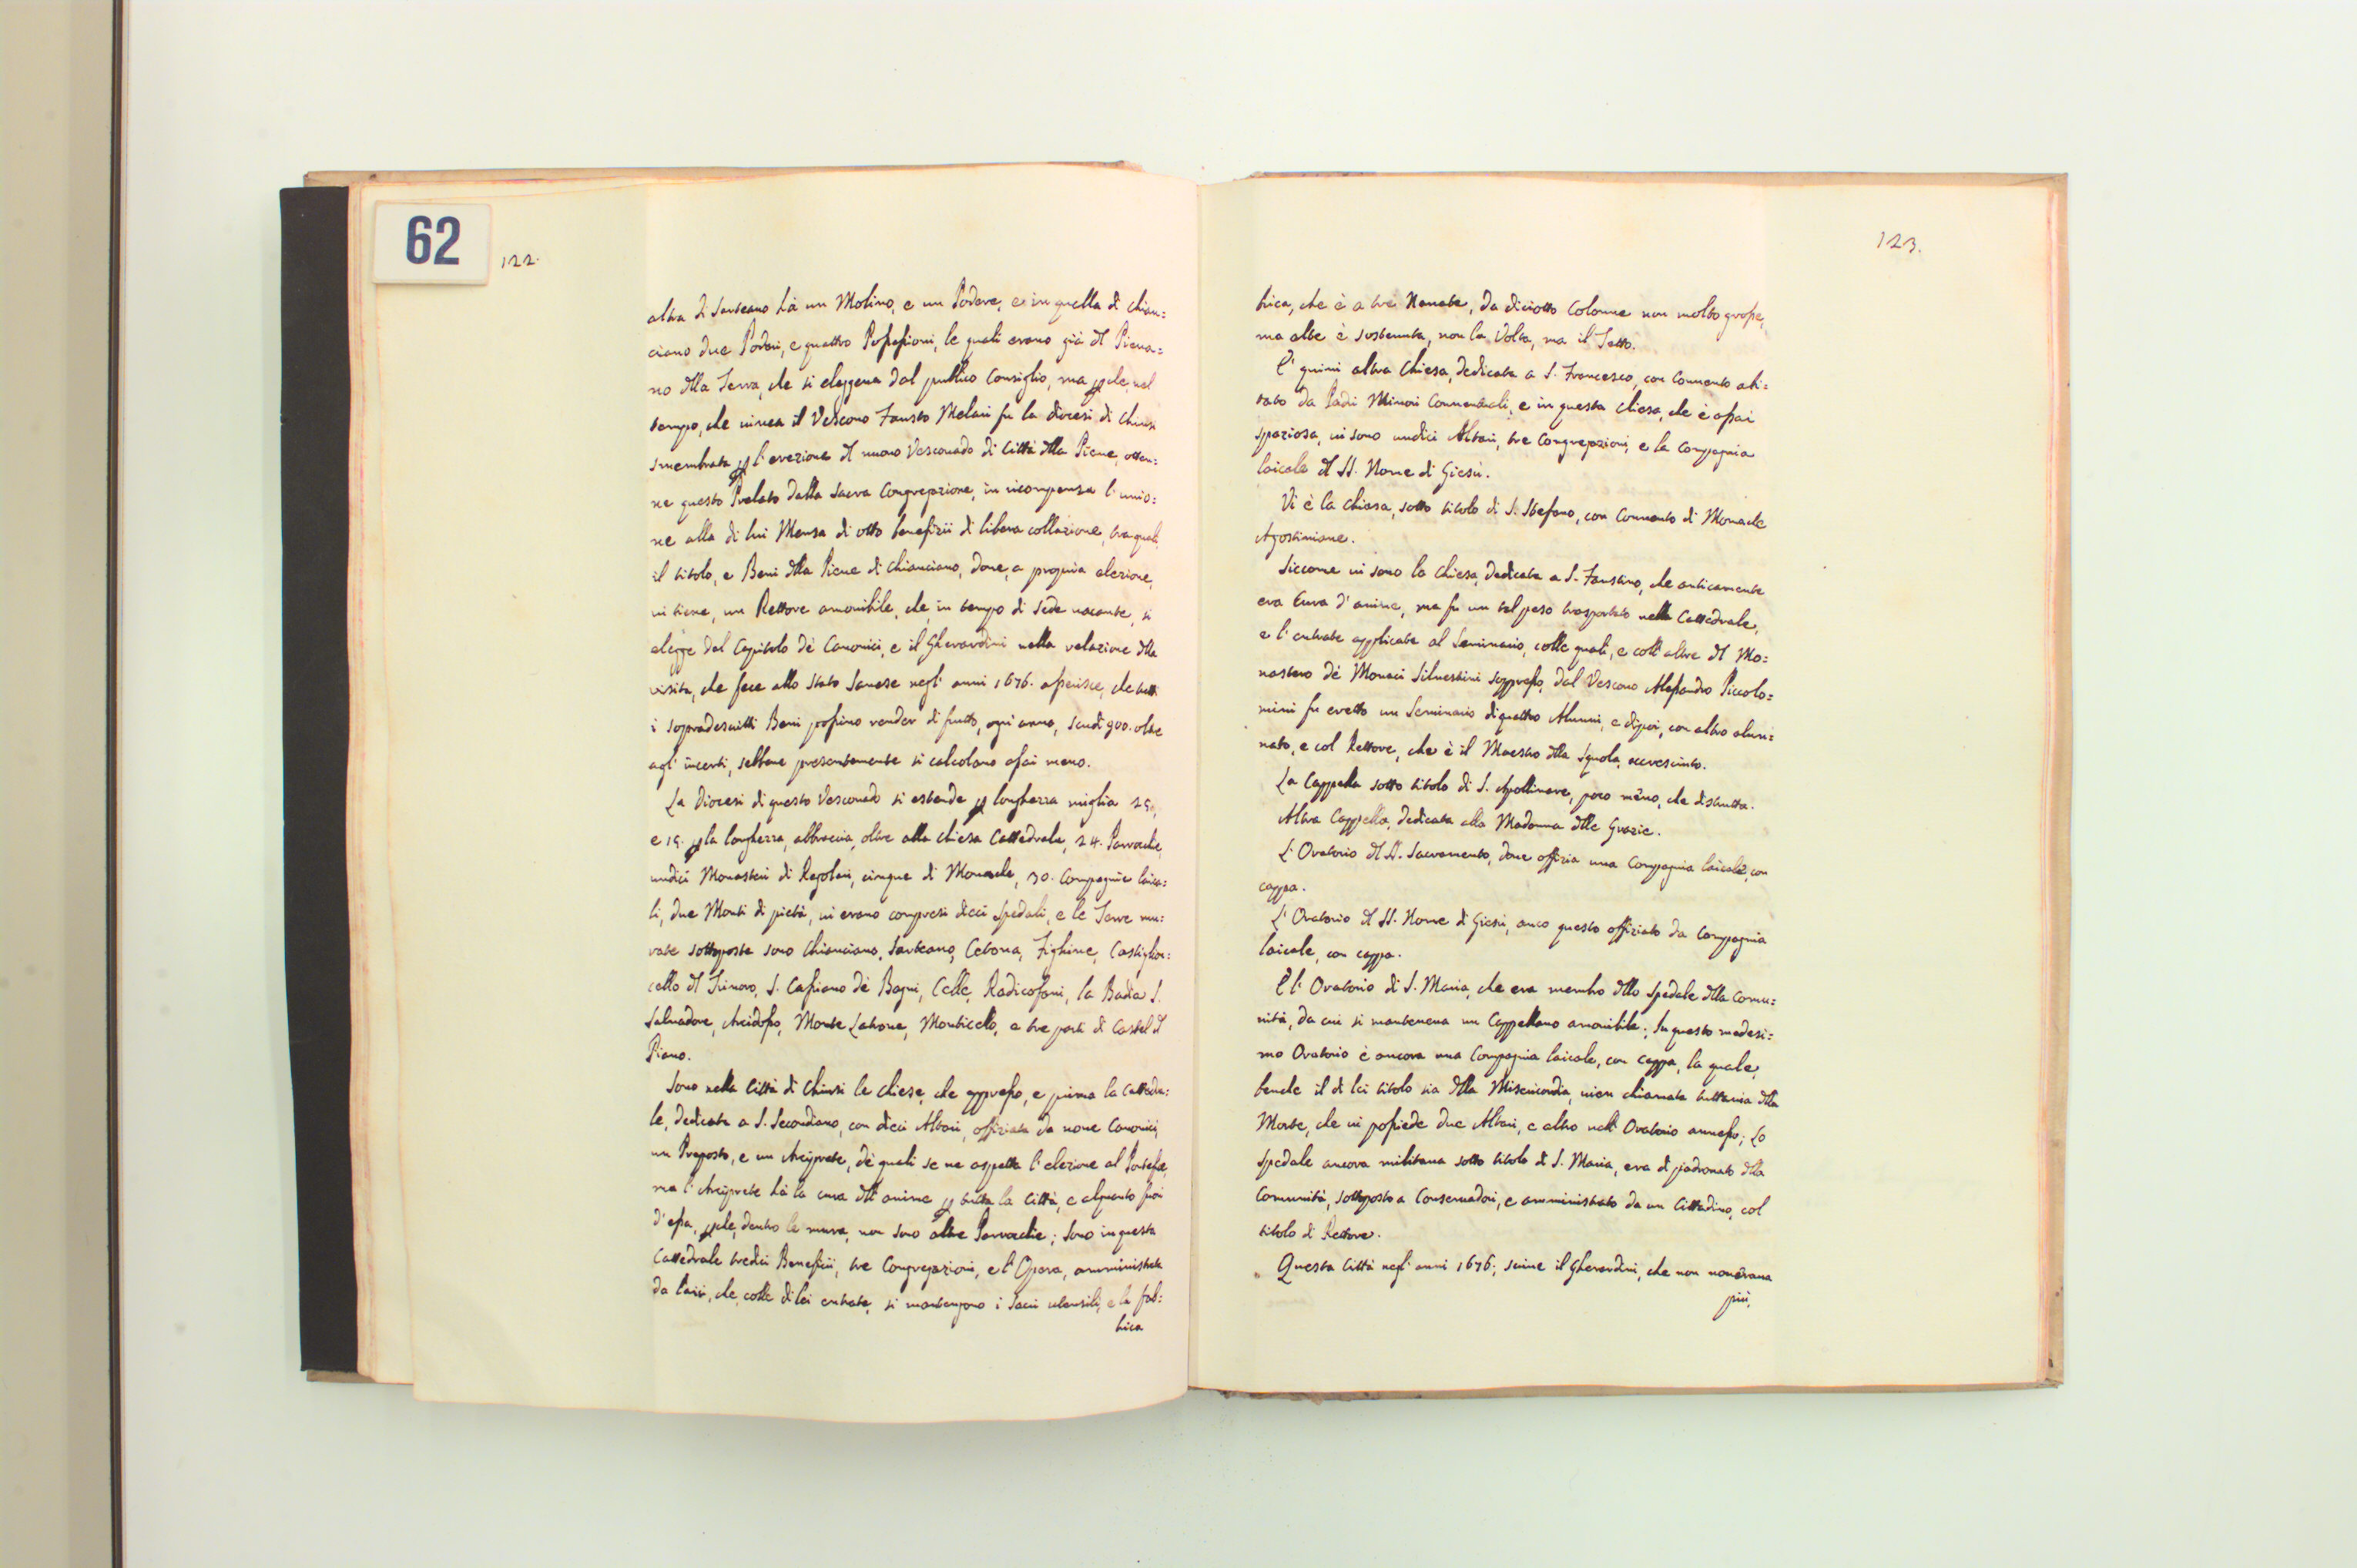 62
122.
altra di Sarteano hà un Molino, e un Podere, e in quella di Chian=
ciano due Poderi, e quattro Possessioni, le quali erano già del Pieva=
no della Terra, che si eleggeva dal publico Consiglio, ma perche, nel
tempo, che viveva il Vescovo Fausto Melari fu la diocesi di Chiusi
smembrata per l'erezione del nuovo Vescovado di Città della Pieve, otten=
ne questo Prelato dalla Sacra Congregazione, in ricompensa l'unio=
ne alla di lui Mensa di otto benefizii di libera collazione, tra quali
il titolo, e Beni della Pieve di Chianciano, dove, a propria elezione,
vi tiene, un Rettore amovibile, che, in tempo di Sede vacante, si
elegge dal Capitolo de' Canonici, e il Gherardini nella relazione della
visita, che fece allo Stato Sanese negl' anni 1676. asserisce, che tutti
i sopradescritti Beni possino render di frutto, ogni anno, scudi 900. oltre
agl' incerti, sebbene presentemente si calcolano assai meno.
La Diocesi di questo Vescovado si estende per longhezza miglia 25,
e 15. per la larghezza, abbraccia, oltre alla Chiesa Cattedrale, 24. Parrochie,
undici Monasteri di Regolari, cinque di Monache, 30. Compagnie laica=
li, due Monti di pietà, vi erano compresi dieci Spedali, e le Terre mu=
rate sottoposte sono Chianciano, Sarteano, Cetona, Fighine, Castiglion=
cello del Trinoro, S. Cassiano de' Bagni, Celle, Radicofani, la Badia S.
Salvadore, Arcidosso, Monte Latrone, Monticello, e tre parti di Castel del
Piano.
Sono nella Città di Chiusi le Chiese, che appresso, e prima la Cattedra=
le, dedicata a S. Secondiano, con dieci Altari, offiziata da nove Canonici,
un Proposto, e un Arciprete, de' quali se ne aspetta l'elezione al Pontefice,
ma l'Arciprete hà la cura dell' anime per tutta la Città, e alquanto fuori
d'essa, perche, dentro le mura, non sono altre Parrochie; Sono in questa
Cattedrale tredici Benefizii, tre Congregazioni, e l'Opera, amministrata
da laici, che, colle di lei entrate, si mantengono i Sacri utensili, e la fab=
brica
123.
brica, che è a tre Navate, da diciotto Colonne non molto grosse,
ma alte è sostenuta, non la Volta, ma il Tetto.
E' quivi altra Chiesa, dedicata a S. Francesco, con Convento abi=
tato da Padri Minori Conventuali, e in questa Chiesa, che è assai
spaziosa, vi sono undici Altari, tre Congregazioni, e la Compagnia
laicale del SS. Nome di Giesù.
Vi è la Chiesa, sotto titolo di S. Stefano, con Convento di Monache
Agostiniane.
Siccome vi sono la Chiesa, dedicata a S. Faustino, che anticamente
era Cura d'anime, ma fu un tal peso trasportato nella Cattedrale,
e l'entrate applicate al Seminario, colle quali, e coll' altre del Mo=
nastero de' Monaci Silvestrini soppresso, dal Vescovo Alessandro Piccolo=
mini fu eretto un Seminario di quattro Alunni, e dipoi, con altro alun=
nato, e col Rettore, che è il Maestro della Squola, accresciuto.
La Cappella sotto titolo di S. Apollinare, poco mēno, che distrutta.
Altra Cappella, dedicata alla Madonna delle Grazie.
L'Oratorio del SS. Sacramento, dove offizia una Compagnia laicale, con
cappa.
L'Oratorio del SS. Nome di Giesù, anco questo offiziato da Compagnia
laicale, con cappa.
E l'Oratorio di S. Maria, che era membro dello Spedale della Comu=
nità, da cui si manteneva un Cappellano amovibile; In questo medesi=
mo Oratorio è ancora una Compagnia laicale, con cappa, la quale,
benche il di lei titolo sia della Misericordia, vien chiamata tuttavia della
Morte, che vi possiede due Altari, e altro nell' Oratorio annesso; Lo
Spedale ancora militava sotto titolo di S. Maria, era di padronato della
Comunità, sottoposto a Conservadori, e amministrato da un Cittadino, col
titolo di Rettore.
Questa Città negl' anni 1676; scrive il Gherardini, che non noverava
più,